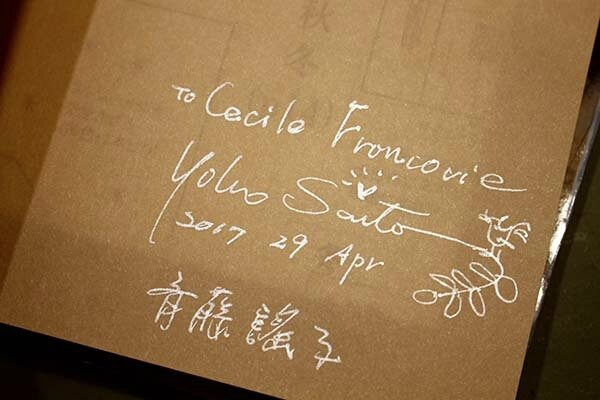 TO Cecile Francovie
Yoko Saito
2017 29 Apr
斉藤謠子